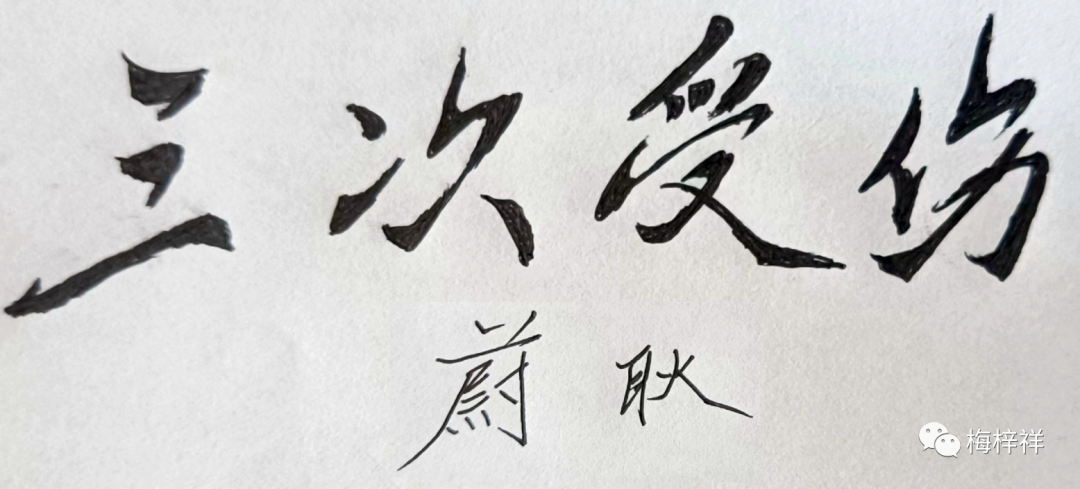 三次受伤
蔚耿
梅梓祥